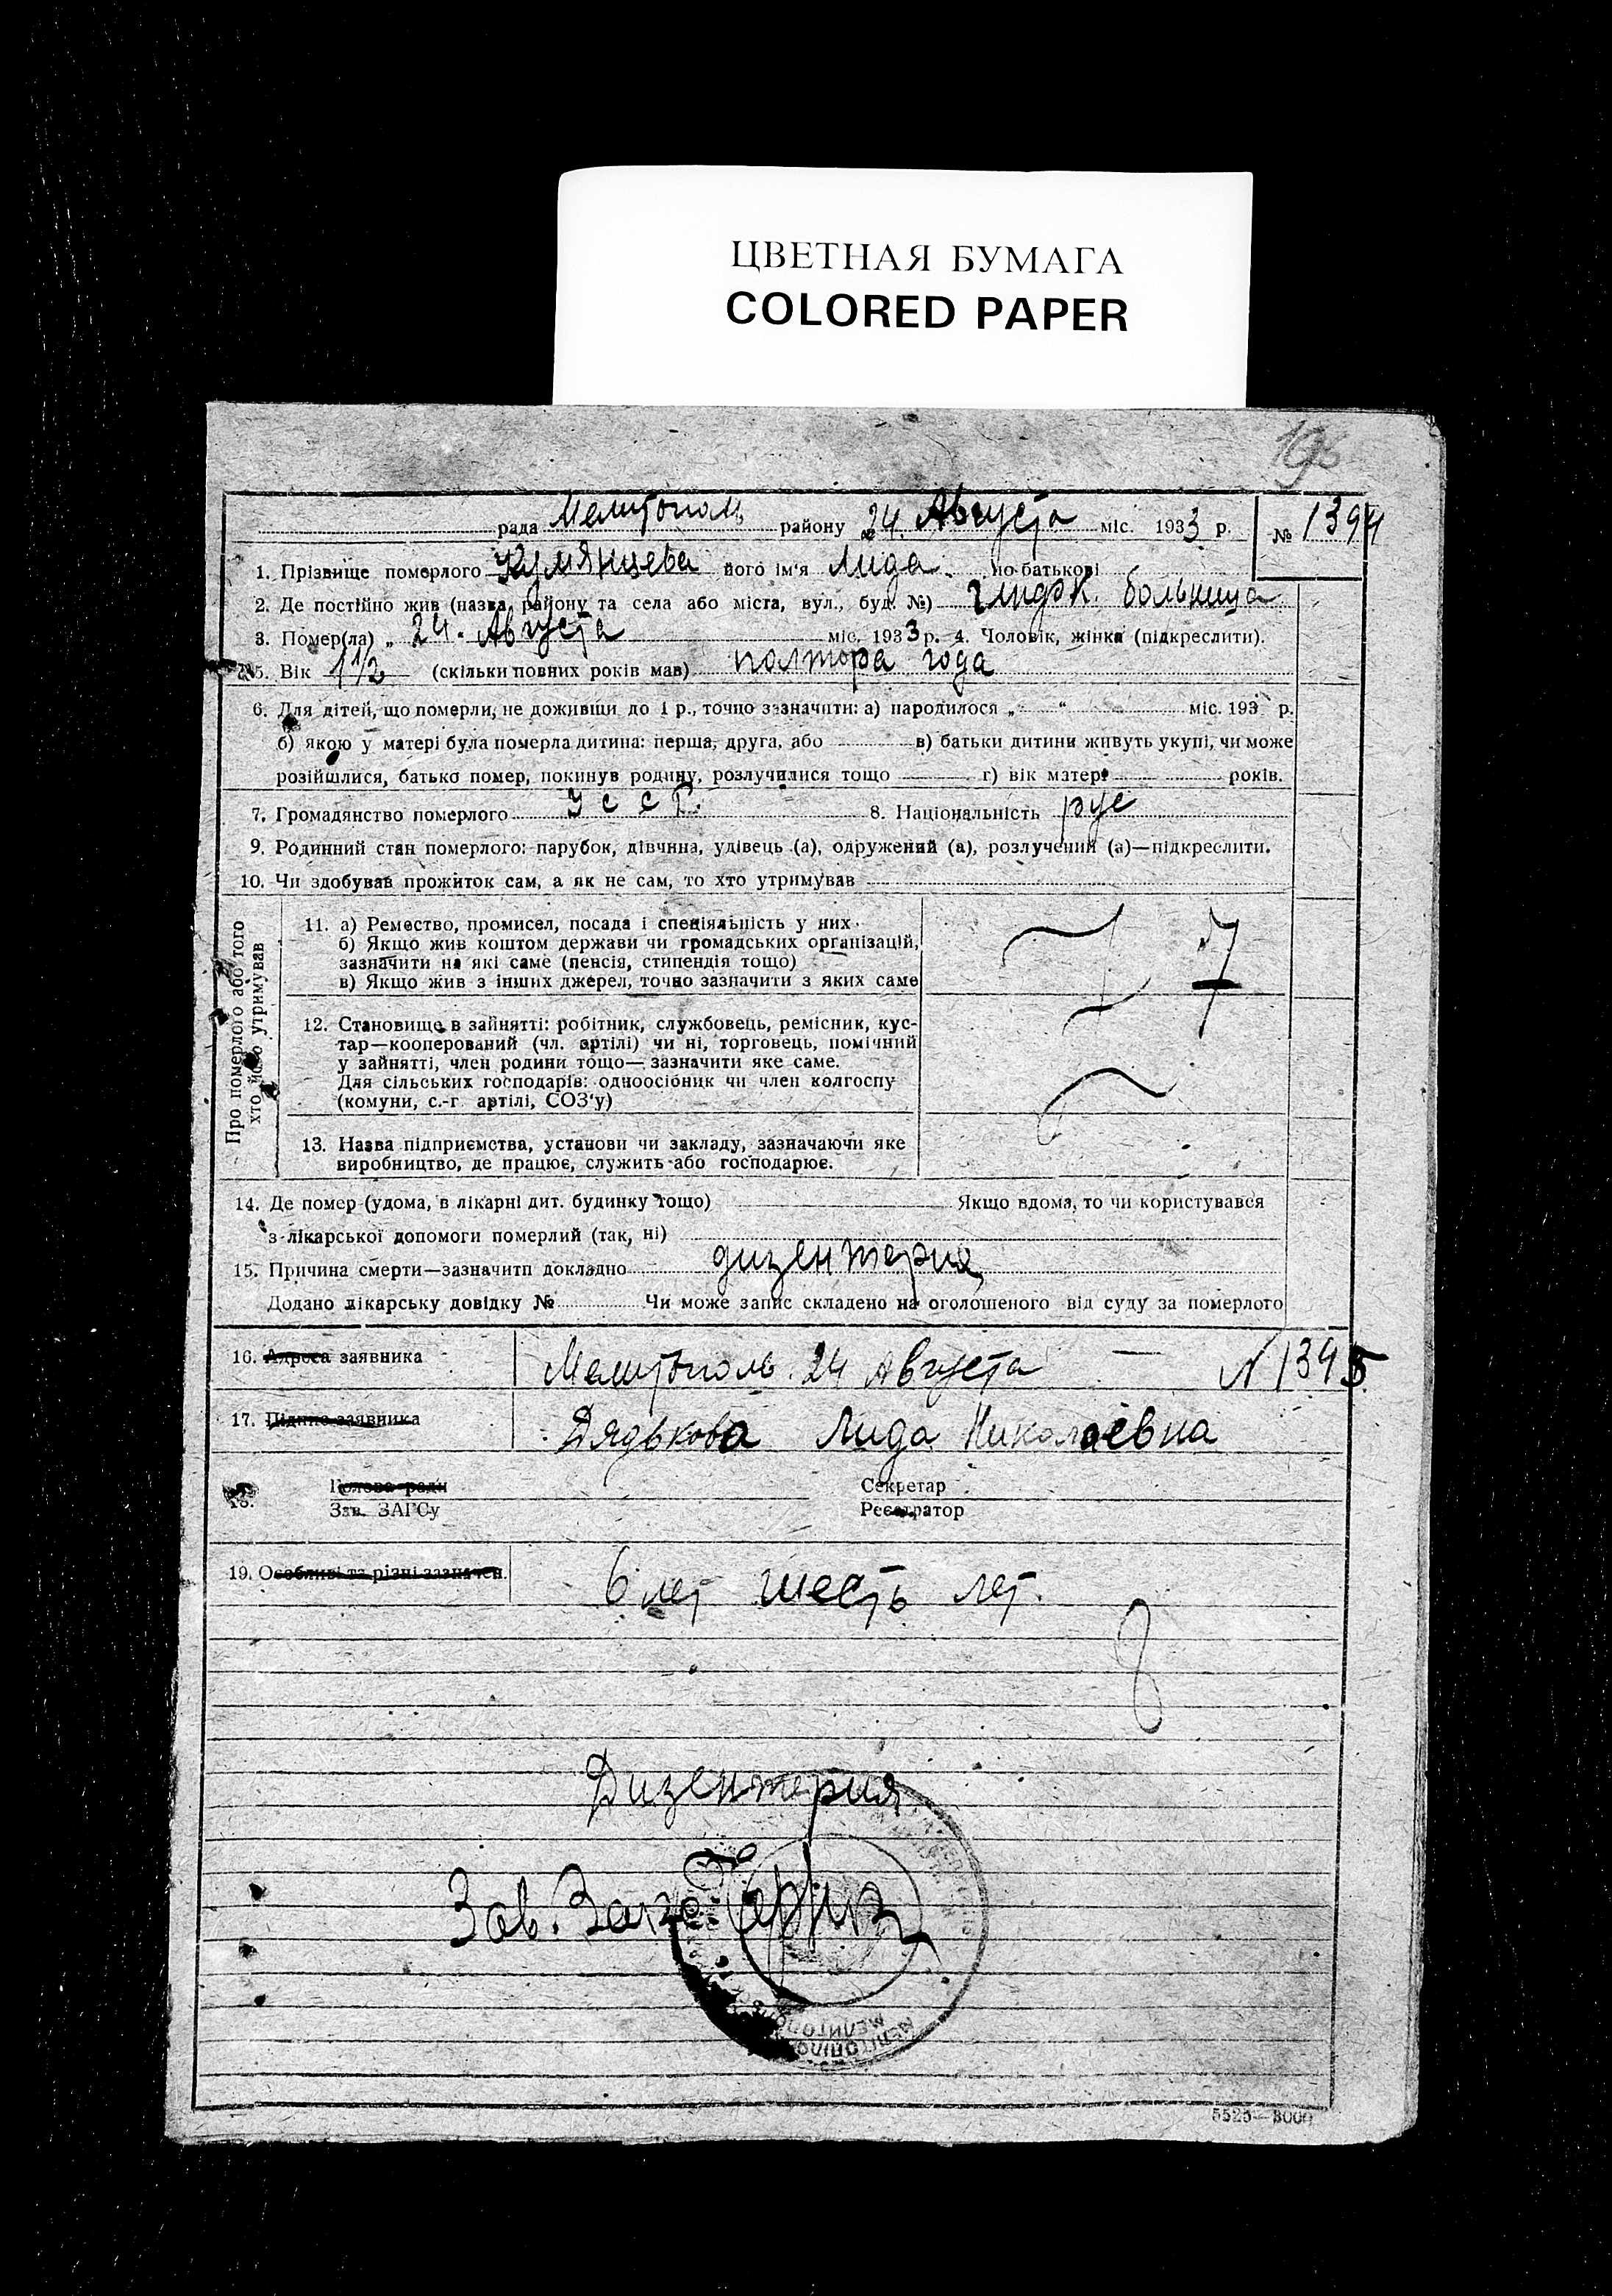 ЦВЕТНАЯ БУМАГА
COLORED PAPER
196
рада Мелитополь району 24. Августа міс. 1933 р. № 1394
1. Прізвище померлого його ім'я Лида по батькові
2. Де постійно жив (назва, району та села або міста, вул., буд. №) больница
3. Помер(ла) „ 24. Августа міс. 1933 р. 4. Чоловік, жінка (підкреслити).
5. Вік 1 1/2 (скільки повних років мав) полтора года
6. Для дітей, що померли, не доживши до 1 р., точно зазначити: а) народилося „ “ міс. 193 р.
б) якою у матері була померла дитина: перша, друга, або в) батьки дитини живуть укупі, чи може
розійшлися, батько помер, покинув родину, розлучилися тощо г) вік матері років.
7. Громадянство померлого УССР. 8. Національність рус
9. Родинний стан померлого: парубок, дівчина, удівець (а), одружений (а), розлучений (а)—підкреслити.
10. Чи здобував прожиток сам, а як не сам, то хто утримував
Про померлого або того
хто його утримував
11. а) Ремество, промисел, посада і спеціяльність у них.
б) Якщо жив коштом держави чи громадських організацій,
зазначити на які саме (пенсія, стипендія тощо)
в) Якщо жив з інших джерел, точно зазначити з яких саме
12. Становище в зайнятті: робітник, службовець, ремісник, кус-
тар—кооперований (чл. артілі) чи ні, торговець, помічний
у зайнятті, член родини тощо— зазначити яке саме.
Для сільських господарів: одноосібник чи член колгоспу
(комуни, с.-г. артілі, СОЗ'у)
13. Назва підприємства, установи чи закладу, зазначаючи яке
виробництво, де працює, служить або господарює.
14. Де помер (удома, в лікарні дит. будинку тощо) Якщо вдома, то чи користувався
з лікарської допомоги померлий (так, ні)
15. Причина смерти—зазначити докладно дизентерия
Додано лікарську довідку № Чи може запис складено на оголошеного від суду за померлого
16. Адреса заявника Мелитополь. 24 Августа — N 1395
17. Підпис заявника Дядькова Лида Николаевна
18. Голова ради Секретар
Зав. ЗАГСу Реєстратор
19. Особливі та різні зазначен. 6 лет шесть лет.
Дизентерия
Зав. Загс
5525—3000